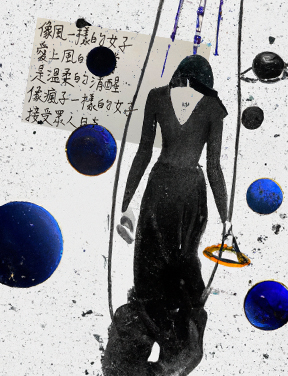 像風一樣的女子
愛上風的
是溫柔的清醒
像瘋子一樣的女子
接受眾人目